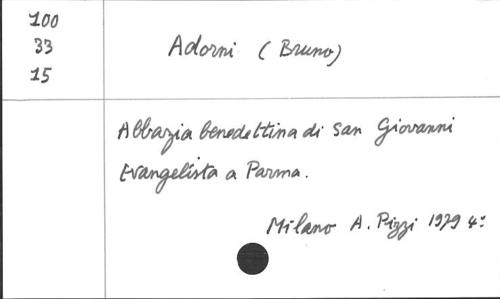 100
33
15
Adorni (Bruno)
Abbazia benedettina di San Giovanni
Evangelista a Parma.
Milano A. Pizzi 1979 4º